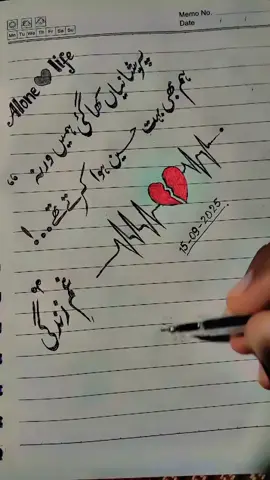 Memo No.
Date / /
Mo Tu We Th Fr Sa Su
Alone life
پریشانیاں کھا گئی ہمیں ورنہ "
ہم بھی بہت حسین ہوا کرتے تھے...!
15-09-2025
زندگی